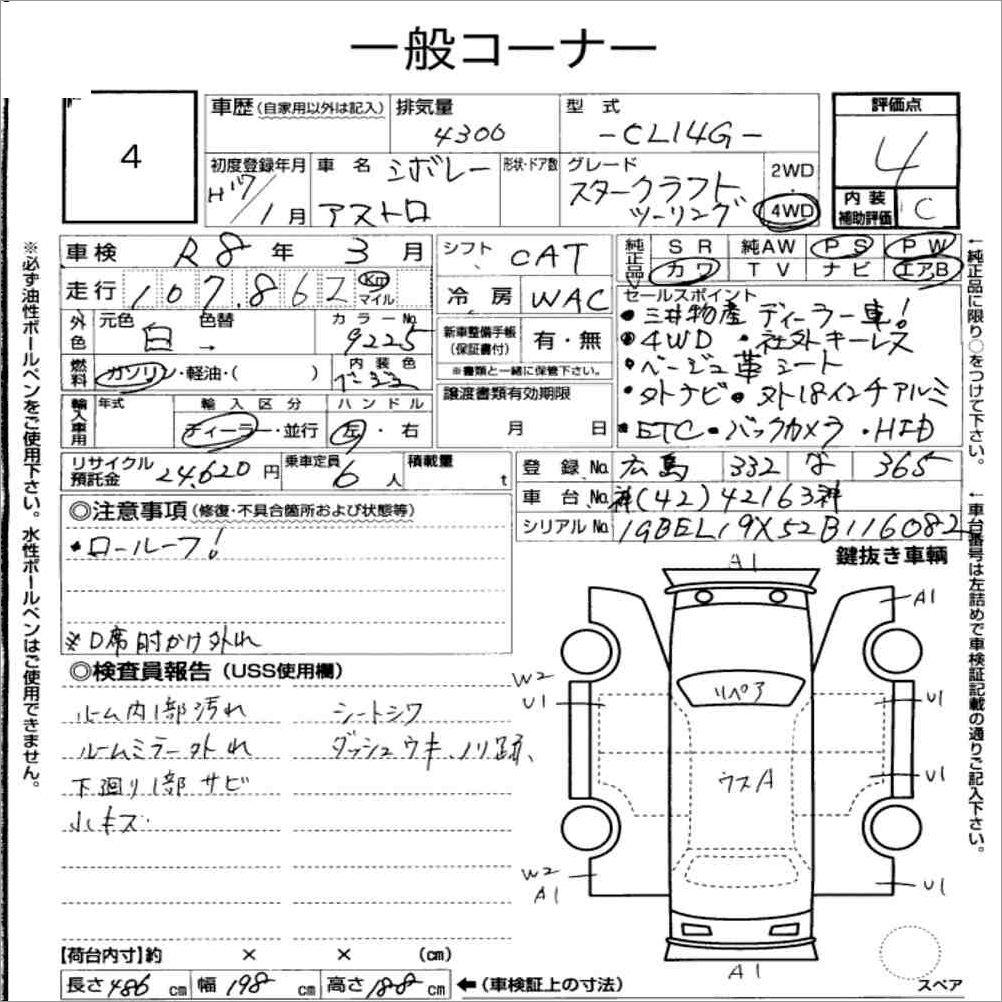 一般コーナー
4
車歴 (自家用以外は記入)
排気量
4300
型式
-CL14G-
評価点
4
内装
補助評価
C
初度登録年月
H17/1月
車名
シボレー
アストロ
形状・ドア数
グレード
スタークラフト
ツーリング
2WD
・
4WD
車検 R8年 3月
走行 107.862 Km
マイル
外色
元色
白
色替
→
カラーNo.
9225
燃料
ガソリン・軽油・( )
内装色
ベージュ
輸入車用
年式
輸入区分
ディーラー・並行
ハンドル
左・右
シフト CAT
冷房 WAC
新車整備手帳
(保証書付)
有・無
※書類と一緒に保管下さい。
譲渡書類有効期限
月 日
純正品
SR 純AW PS PW
カワ TV ナビ エアB
セールスポイント
・三井物産 ディーラー車!
・4WD ・社外キーレス
・ベージュ革シート
・外ナビ・外18インチアルミ
・ETC・バックカメラ・HID
リサイクル
預託金
24,620円
乗車定員
6人
積載量
t
登録No. 広島 332 な 365
車台No. 神(42)42163神
シリアルNo. 1GBEL19X52B116082
◎注意事項 (修復・不具合箇所および状態等)
・ロールーフ!
※D席肘かけ外れ
鍵抜き車輌
◎検査員報告 (USS使用欄)
ルーム内1部汚れ
シートシワ
ルームミラー外れ
ダッシュウキ、ノリ跡、
下廻り1部サビ
小キズ
A1
A1
W2
U1
リペア
U1
ウスA
U1
W2
A1
U1
A1
スペア
【荷台内寸】約 × × (cm)
長さ486cm 幅198cm 高さ188cm
←(車検証上の寸法)
※必ず油性ボールペンをご使用下さい。水性ボールペンはご使用できません。
←純正品に限り○をつけて下さい。
←車台番号は左詰めで車検証記載の通りご記入下さい。